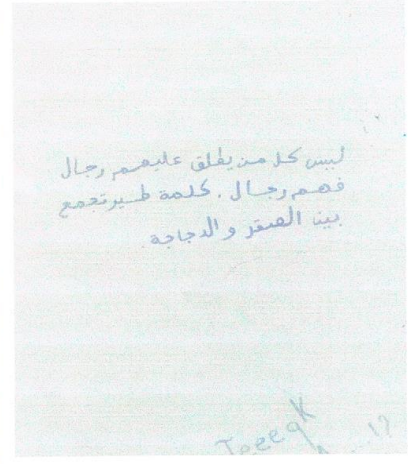 ليس كل من يطلق عليهم رجال
فهم رجال . كلمة طير تجمع
بين الصقر و الدجاجة